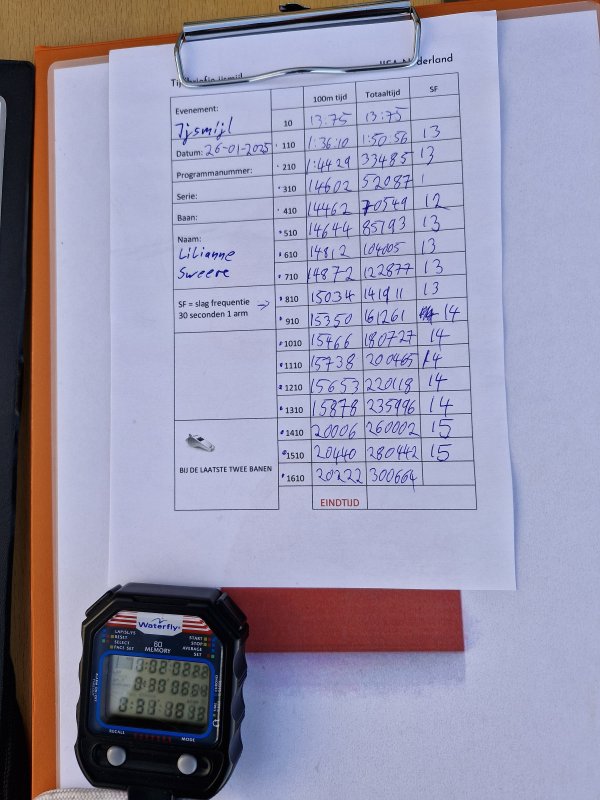 Evenement:
Ijsmijl
Datum: 26-01-2025
Programmanummer:
Serie:
Baan:
Naam:
Lilianne
Sweere
SF = slag frequentie
30 seconden 1 arm
BIJ DE LAATSTE TWEE BANEN
100m tijd Totaaltijd SF
10 13:75 13:75
110 1:36:10 1:50:56 13
210 1:4429 33485 13
310 14602 52087
410 14462 70549 12
510 14644 85193 13
610 14812 104005 13
710 14872 122877 13
810 15034 141911 13
910 15350 161261 14
1010 15466 180727 14
1110 15738 200465 14
1210 15653 220118 14
1310 15878 235996 14
1410 20006 260002 15
1510 20440 280442 15
1610 20222 300664
EINDTIJD
Waterfly
LAP/SL/FS
RESET
SELECT
PACE SET
60
MEMORY
START
STOP
AVERAGE
SET
RECALL
MODE